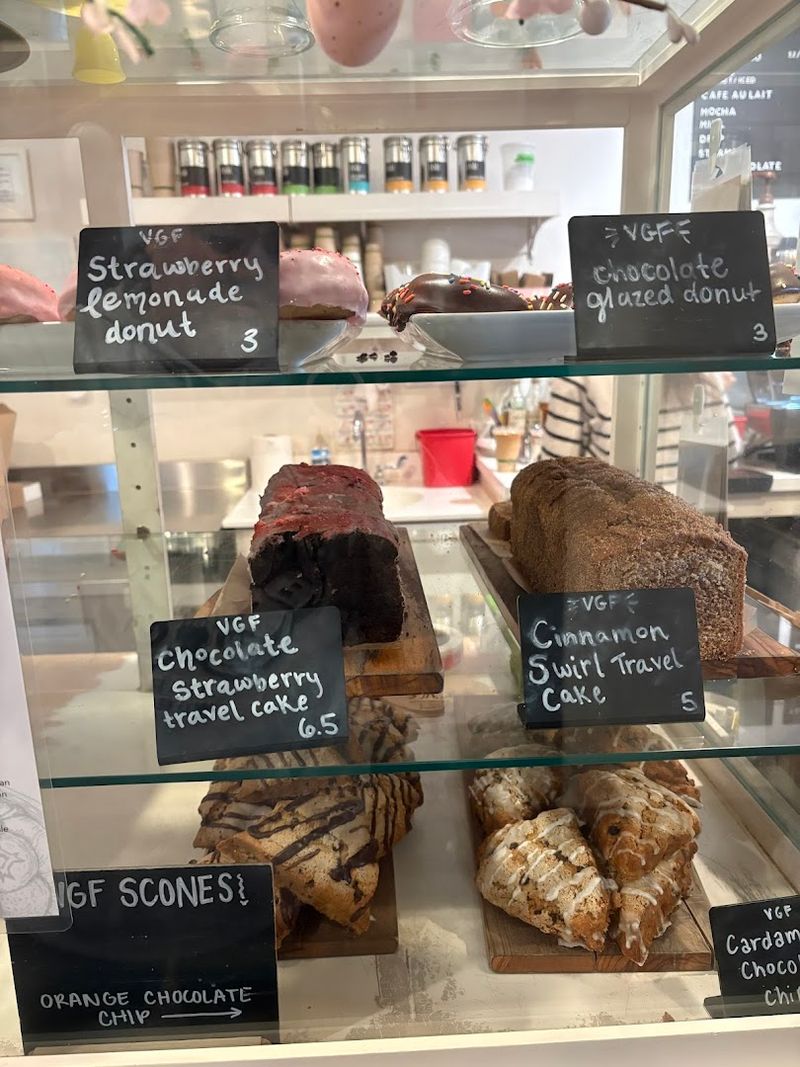 CAFE AU LAIT
MOCHA
VGF
Strawberry
lemonade
donut
3
VGF
chocolate
glazed donut
3
VGF
Chocolate
Strawberry
travel cake
6.5
VGF
Cinnamon
Swirl Travel
Cake
5
VGF SCONES
ORANGE CHOCOLATE
CHIP
VGF
Cardam
Chocol
Chi